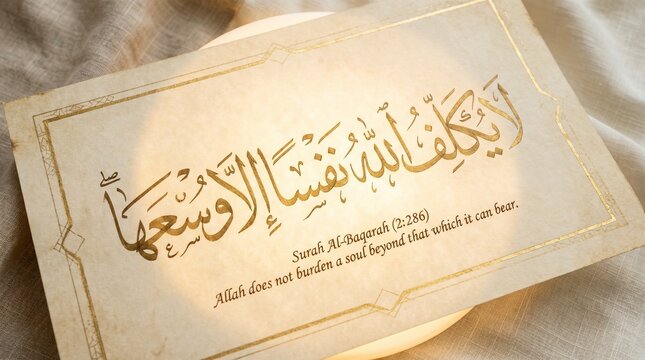 لَا يُكَلِّفُ ٱللَّهُ نَفْسًا إِلَّا وُسْعَهَا ۖ
Surah Al-Baqarah (2:286)
Allah does not burden a soul beyond that which it can bear.